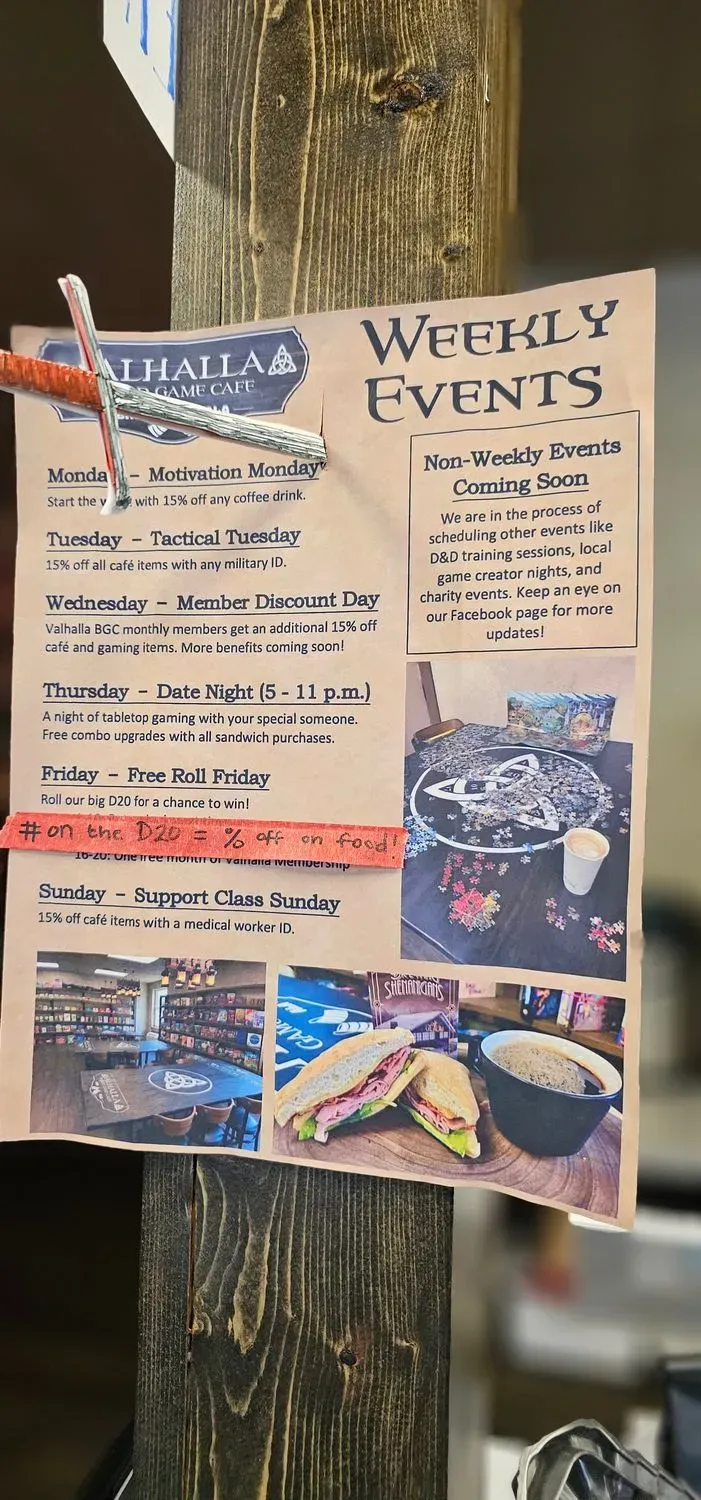 ALHALLA
GAME CAFE
WEEKLY
EVENTS
Monda – Motivation Monday
Start the with 15% off any coffee drink.
Tuesday – Tactical Tuesday
15% off all café items with any military ID.
Wednesday – Member Discount Day
Valhalla BGC monthly members get an additional 15% off
café and gaming items. More benefits coming soon!
Thursday – Date Night (5 - 11 p.m.)
A night of tabletop gaming with your special someone.
Free combo upgrades with all sandwich purchases.
Friday – Free Roll Friday
Roll our big D20 for a chance to win!
#on the D20 = % off on food!
16-20: One free month of Valhalla Membership
Sunday – Support Class Sunday
15% off café items with a medical worker ID.
Non-Weekly Events
Coming Soon
We are in the process of
scheduling other events like
D&D training sessions, local
game creator nights, and
charity events. Keep an eye on
our Facebook page for more
updates!
VALHALLA
SHENANIGANS
GAM